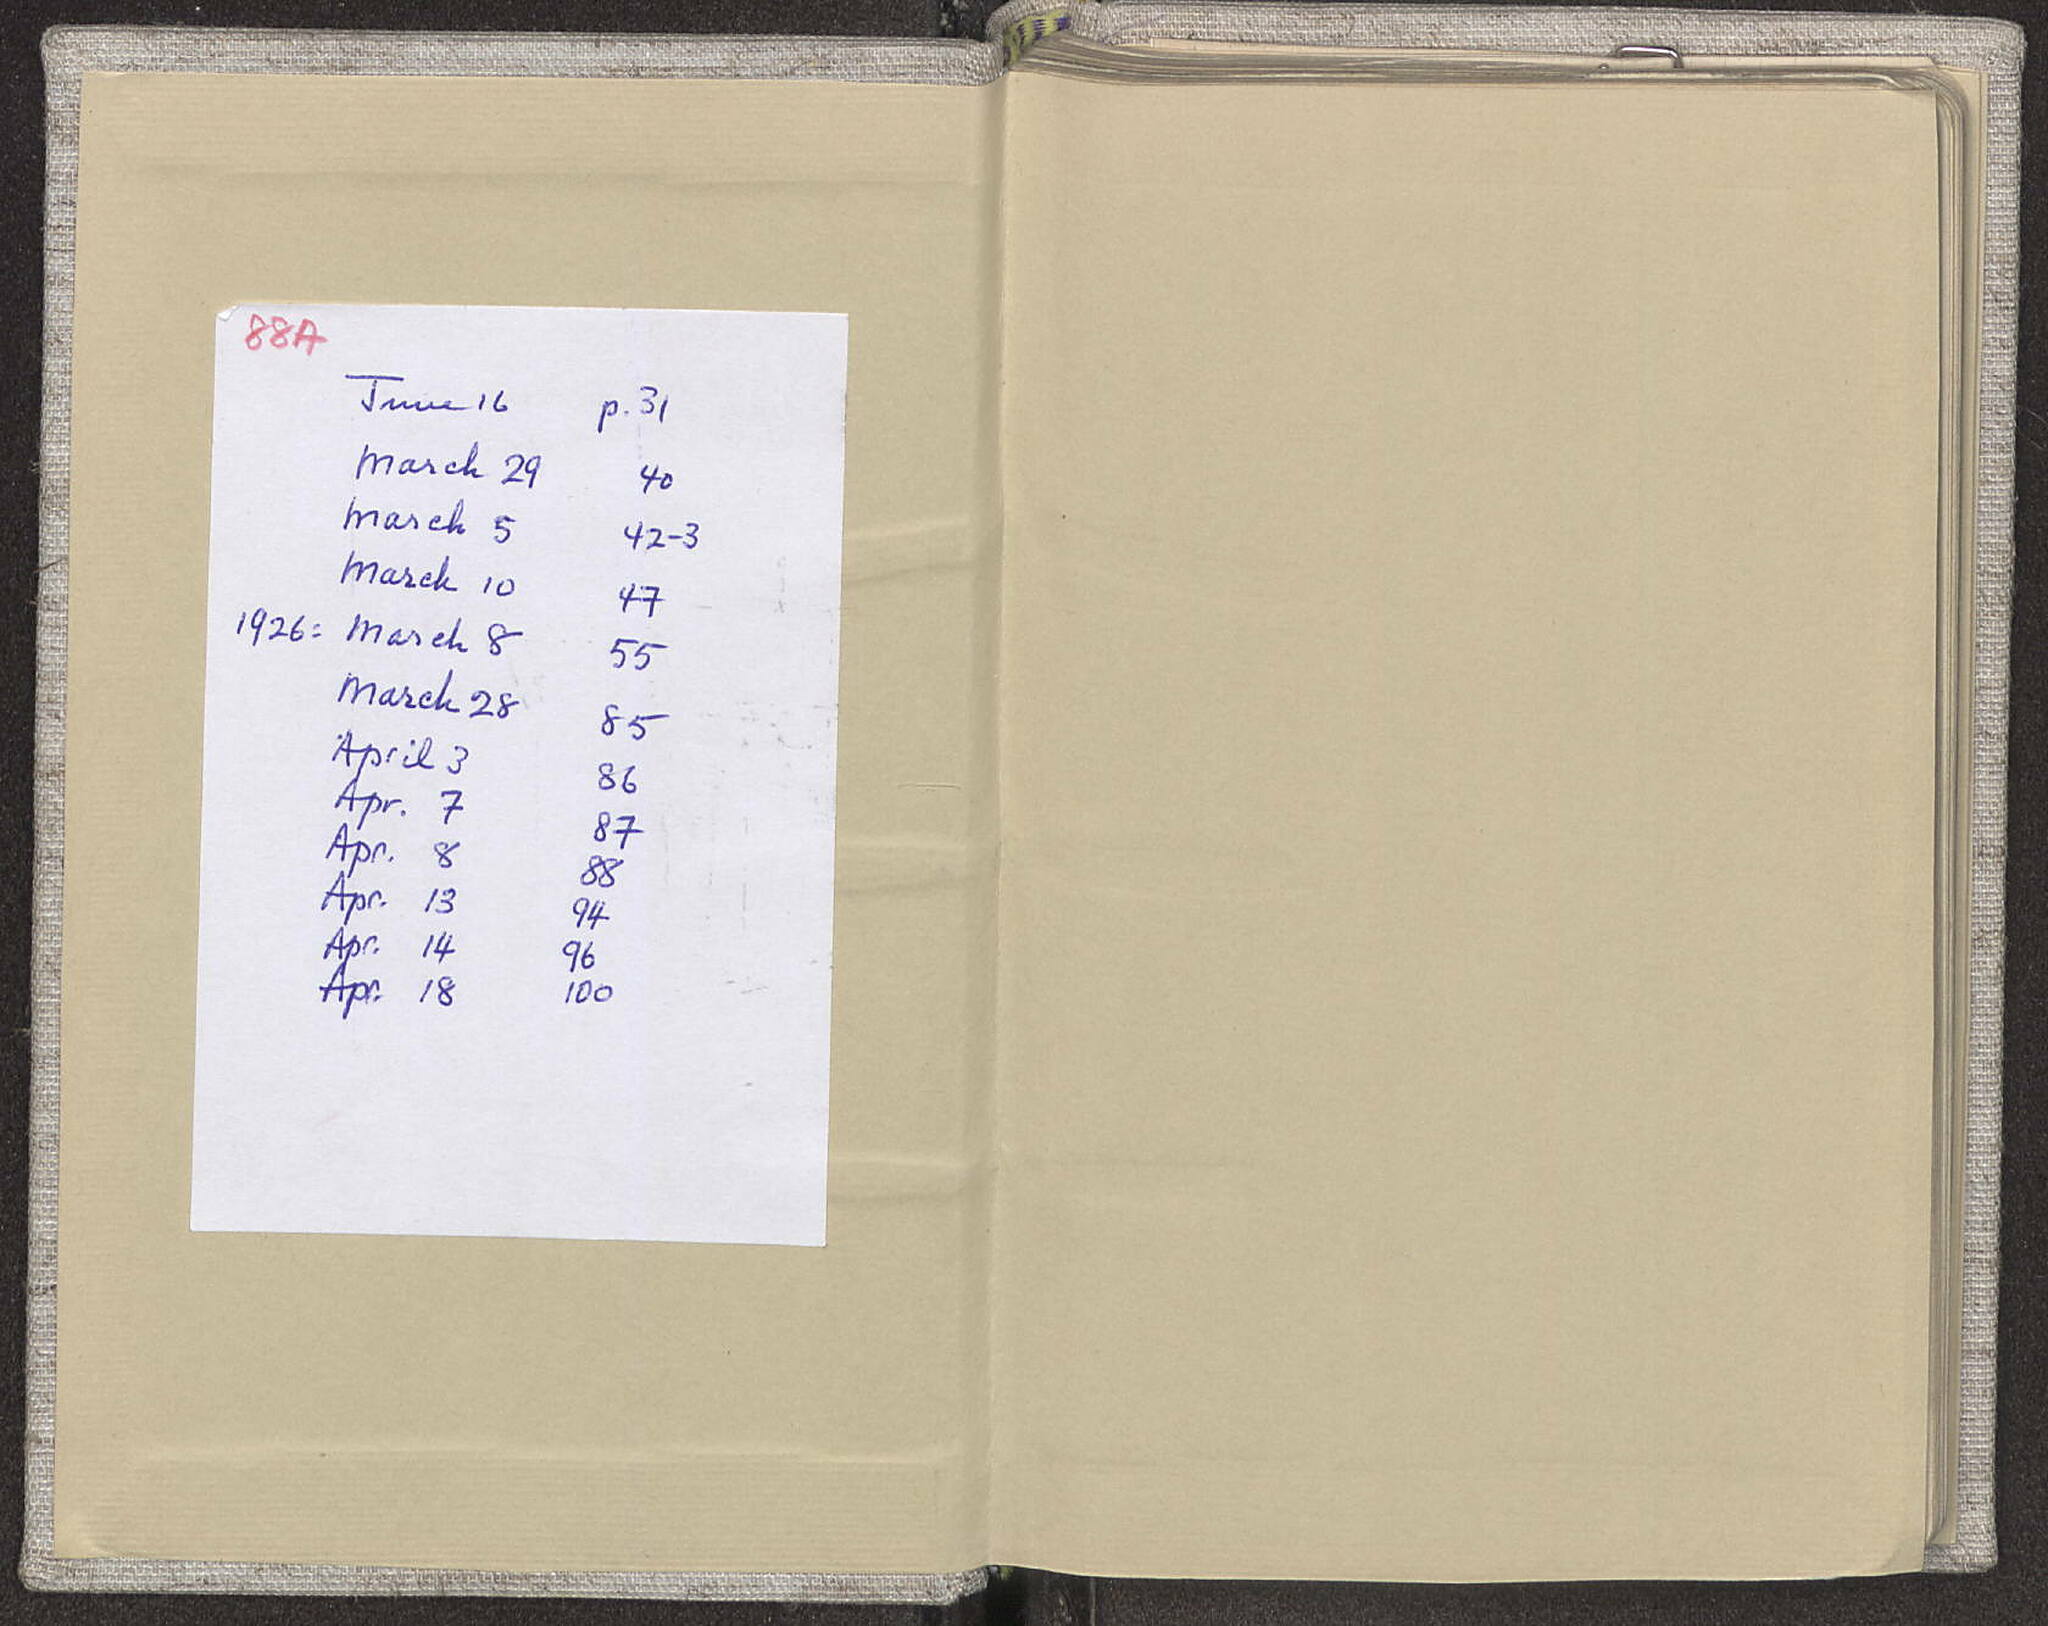 88A
June 16 p. 31
March 29 40
March 5 42-3
March 10 47
1926: March 8 55
March 28 85
April 3 86
Apr. 7 87
Apr. 8 88
Apr. 13 94
Apr. 14 96
Apr. 18 100